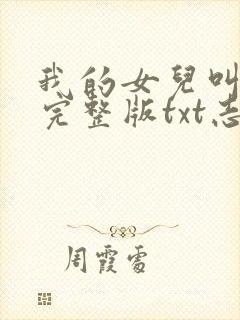 我的女兒叫
完整版txt志
周霞雷